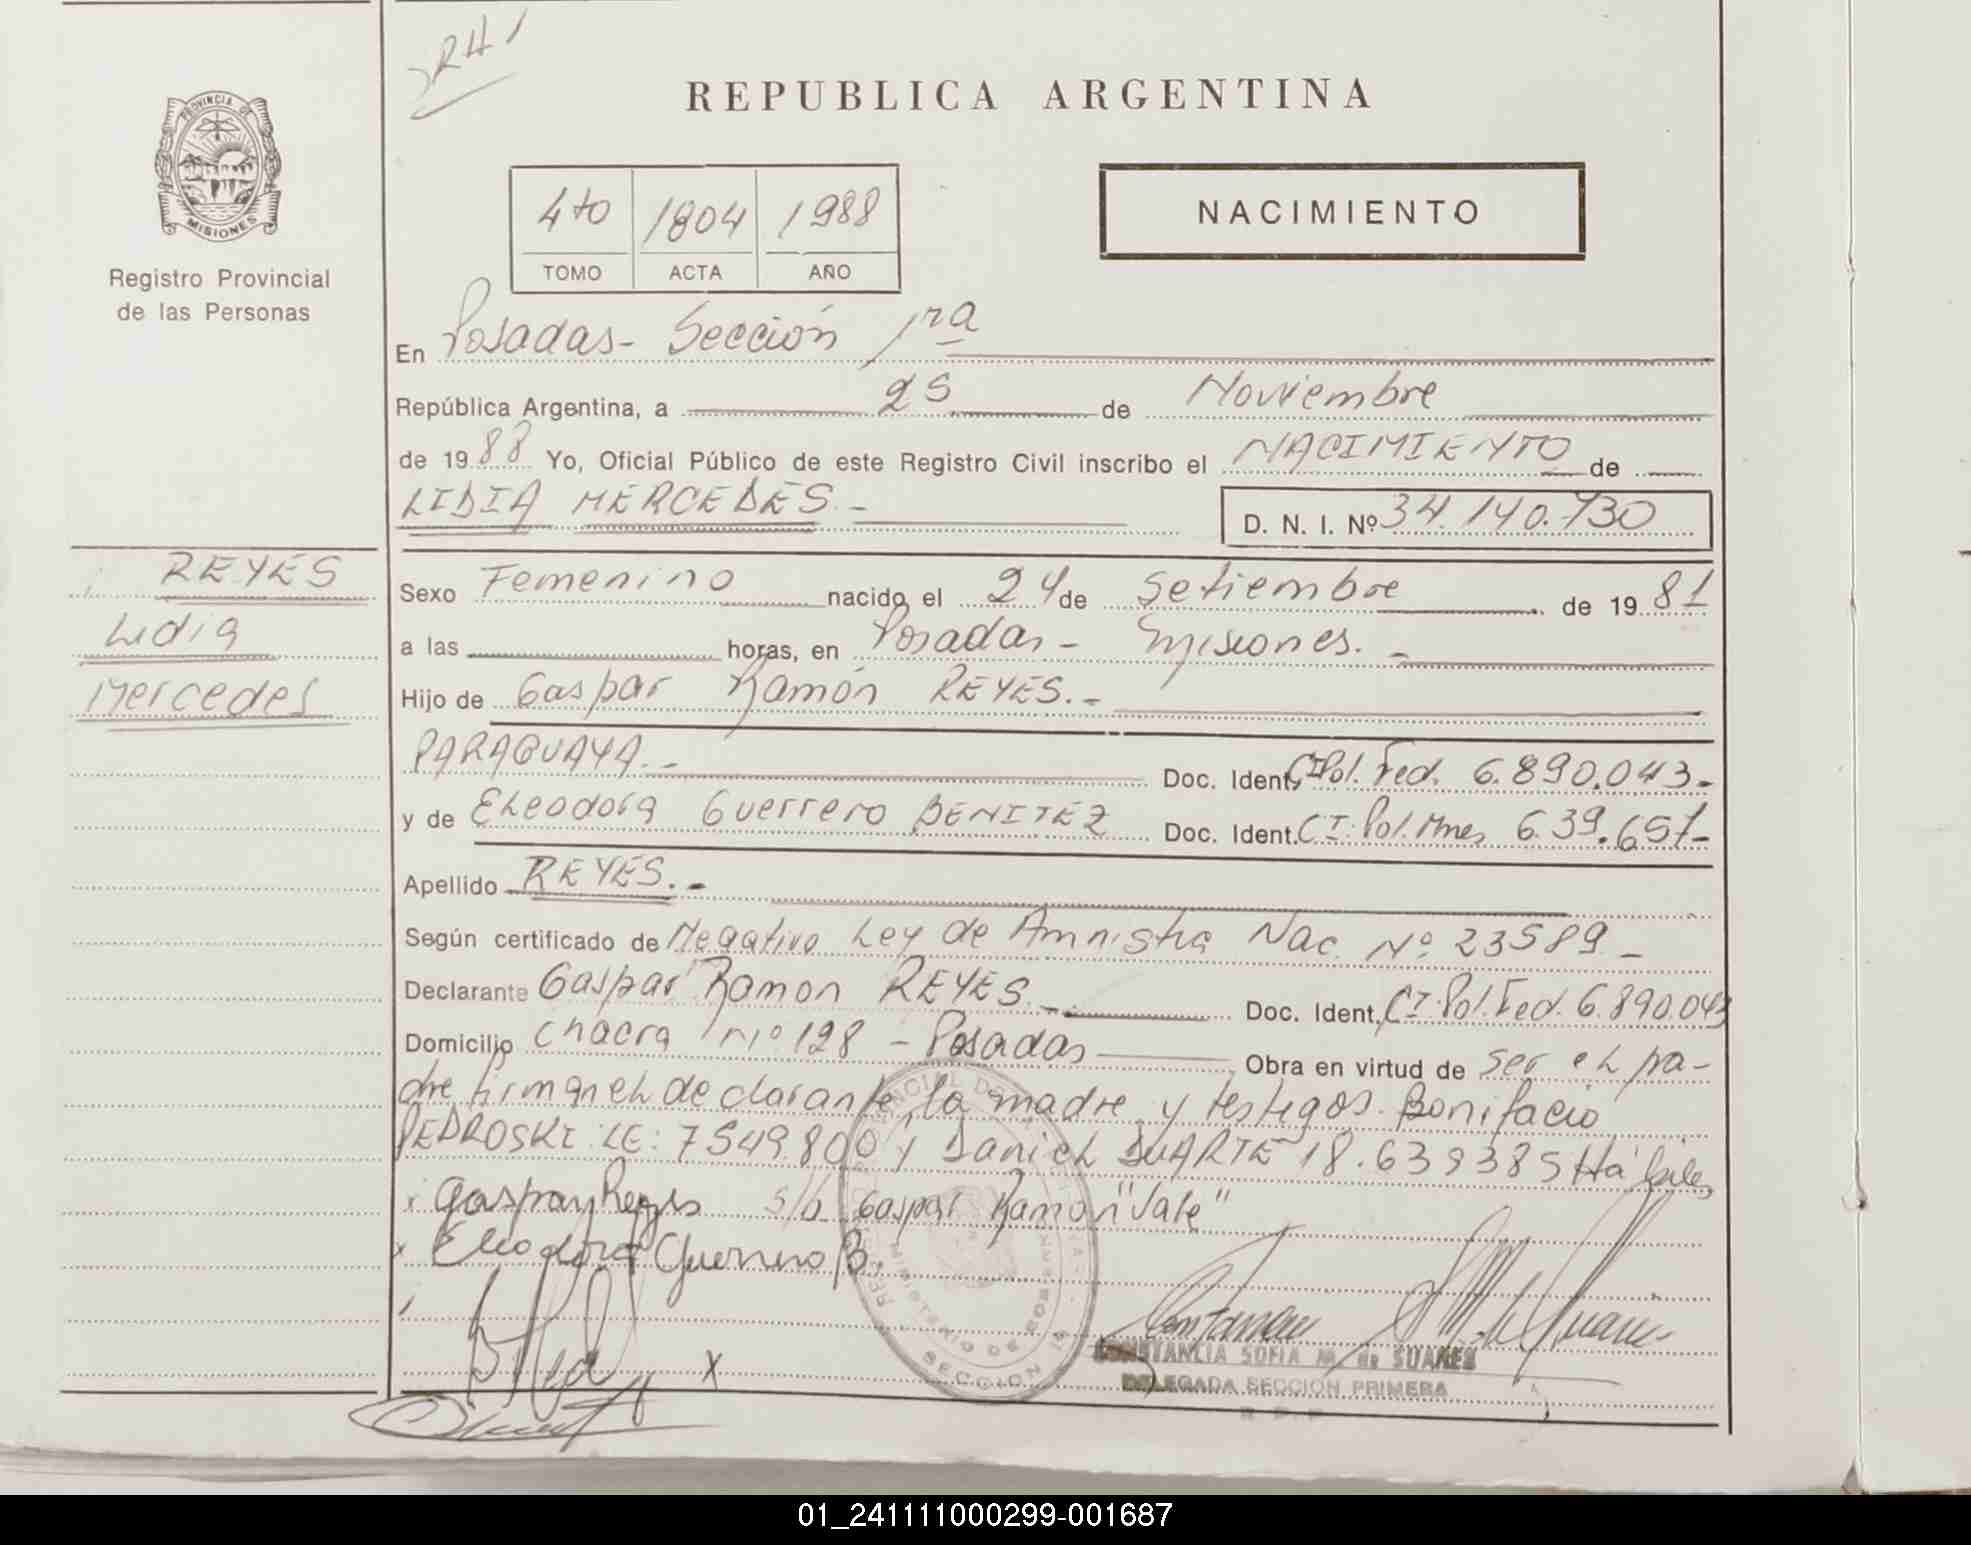 RH
REPUBLICA ARGENTINA
PROVINCIA DE
MISIONES
Registro Provincial
de las Personas
4to 1804 1988
TOMO ACTA AÑO
NACIMIENTO
En Posadas - Sección 1ra
República Argentina, a 25 de Noviembre
de 1988 Yo, Oficial Público de este Registro Civil inscribo el NACIMIENTO de
LIDIA MERCEDES.- D. N. I. Nº 34.140.730
REYES
Lidia
Mercedes
Sexo Femenino nacido el 24 de Setiembre de 1981
a las horas, en Posadas - Misiones.-
Hijo de Gaspar Ramón REYES.-
PARAGUAYA.- Doc. Ident. CI Pol. Fed. 6.890.043-
y de Eleodora Guerrero BENITEZ Doc. Ident. CI. Pol. Mnes 639.657-
Apellido REYES.-
Según certificado de Negativo Ley de Amnistia Nac. Nº 23589-
Declarante Gaspar Ramon REYES.- Doc. Ident. CI. Pol. Fed. 6.890.043
Domicilio Chacra Nº 128 - Posadas Obra en virtud de ser el pa-
dre firman el declarante, la madre y testigos Bonifacio
PEDROSKI LE: 7549.800 y Daniel DUARTE 18.639385 Hábiles
x Gaspar Reyes s/b Gaspar Ramon "Vale"
x Eleodora Guerrero B.
x
MINISTERIO DE GOBIERNO
SECCION 1a
CONSTANCIA SOFIA M. de SUARES
DELEGADA SECCION PRIMERA
R. P. P.
01_241111000299-001687